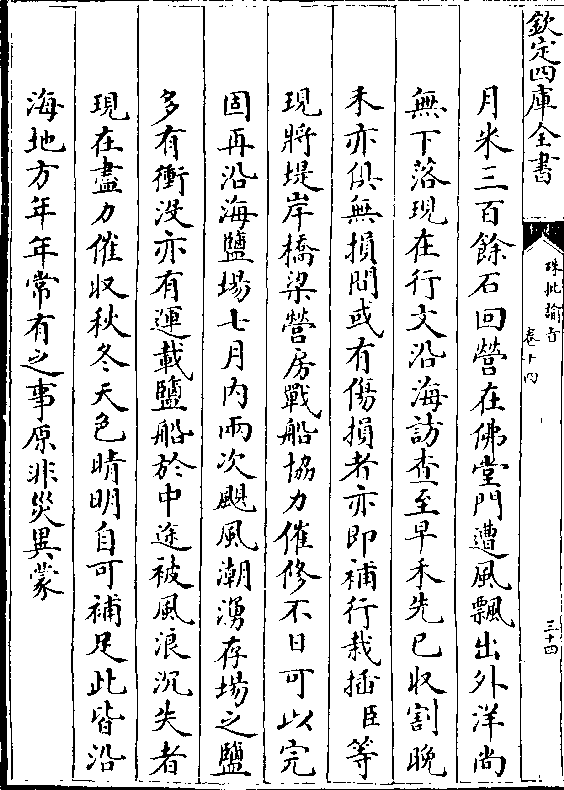 欽定四庫全書
硃批諭旨
卷十四
三十四
月米三百餘石回營在佛堂門遭風飄出外洋尚
無下落現在行文沿海訪查至早禾先已收割晚
禾亦俱無損間或有傷損者亦即補行栽插臣等
現將堤岸橋梁營房戰船協力催修不日可以完
固再沿海鹽場七月內兩次颶風潮湧存場之鹽
多有衝沒亦有運載鹽船於中途被風浪沉失者
現在盡力催收秋冬天色晴明自可補足此皆沿
海地方年年常有之事原非災異蒙